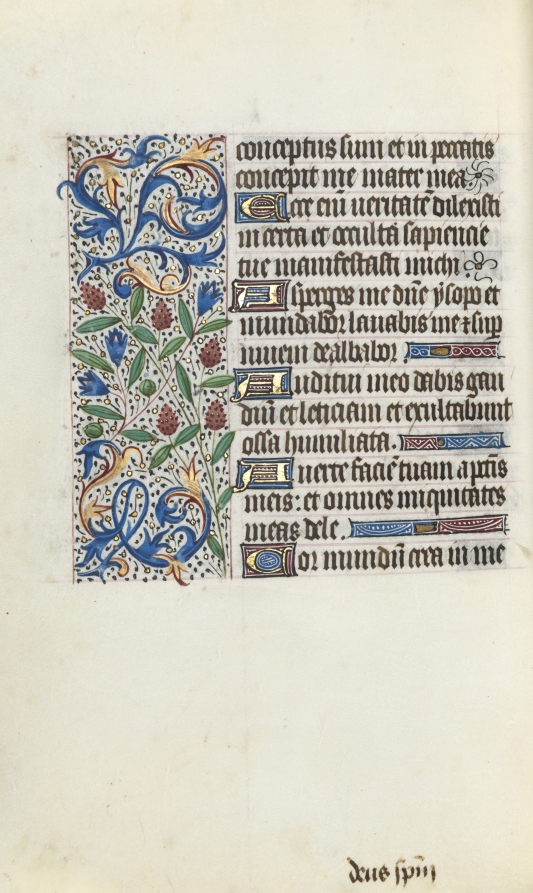 conceptus sum et in peccatis
concepit me mater mea
Ecce eni ueritatē dilexisti
incerta et occulta sapiencie
tue manifestasti michi.
Asperges me dn̄e ysopo et
mundabor lauabis me ⁊ sup
niuem dealbabor.
Auditui meo dabis gau
diū et leticiam et exultabunt
ossa humiliata.
Auerte faciē tuam a pctīs
meis: et omnes iniquitates
meas dele.
Cor mundū crea in me
deus spm̄